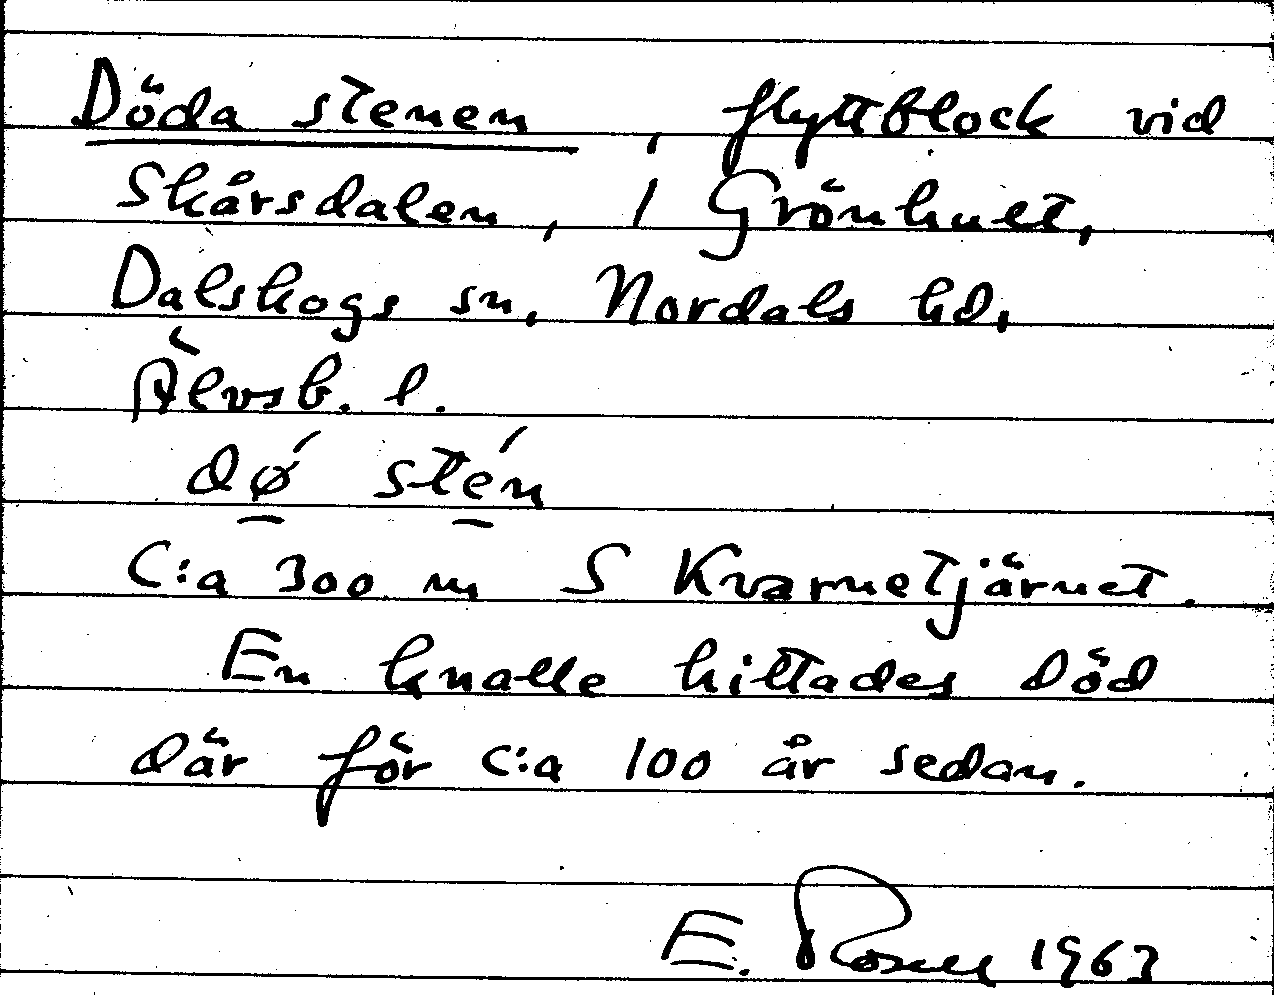 Döda stenen, flyttblock vid
Skårsdalen, 1 Grönhuet,
Dalskogs sn, Nordals hd,
Älvsb. l.
dø̄́ stḗn
C:a 300 m S Kvarnetjärnet.
En knalle hittades död
där för c:a 100 år sedan.
E. 1963